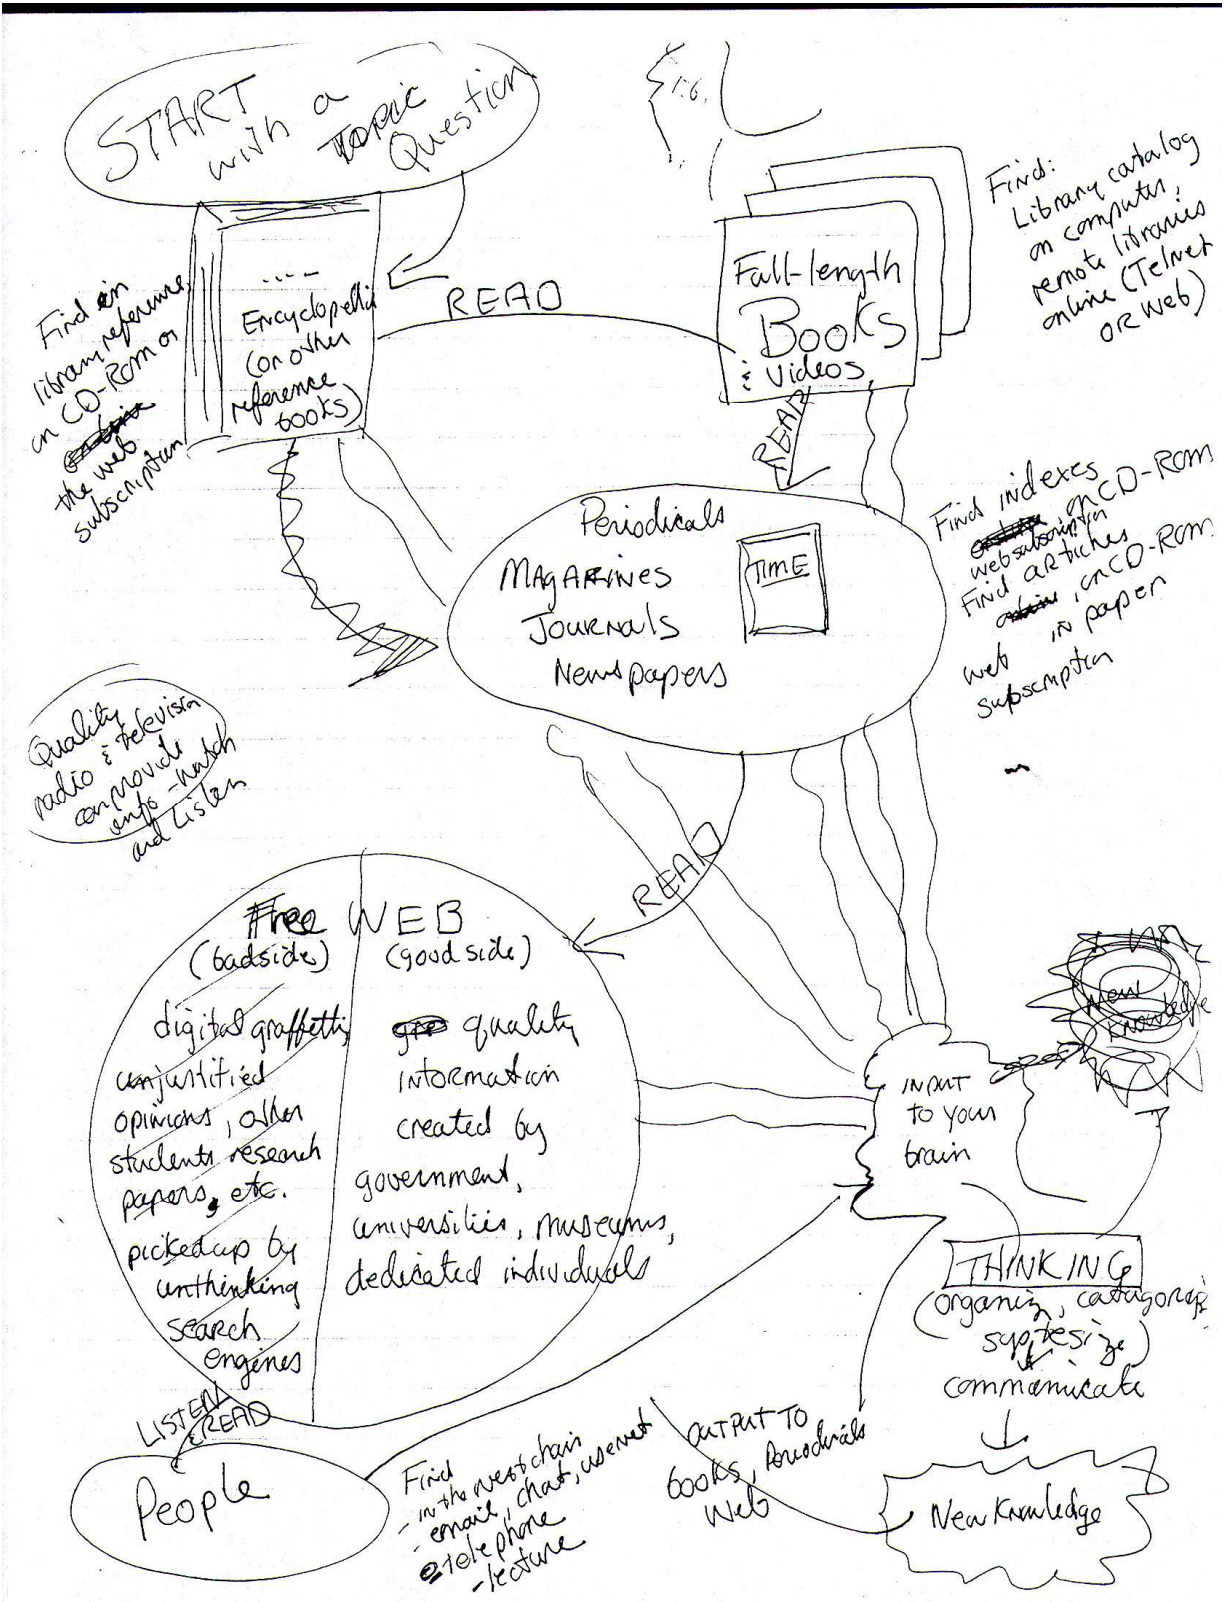 START
with a
TOPIC
Question
Find in
library reference,
on CD-Rom or
the web
subscription
Encyclopedia
(or other
reference
books)
READ
Full-length
Books
& Videos
Find:
Library catalog
on computer,
remote libraries
online (Telnet
OR Web)
READ
Periodicals
MAgAZiNES
JOURNALS
Newspapers
TIME
Find indexes
on CD-ROM
web subscription
Find articles
, on CD-ROM
in paper
web
subscription
Quality
radio & television
can provide
info - watch
and Listen
READ
Free WEB
(bad side)
digital graffetti
unjustified
opinions, other
students research
papers, etc.
picked up by
unthinking
search
engines
(good side)
quality
information
created by
government,
universities, museums,
dedicated individuals
LISTEN
& READ
People
Find
- in the next chair
- email, chat, usenet
- telephone
- lecture
INPUT
to your
brain
New
Knowledge
THINKING
(organiz, catagorize
syptesize)
communicate
New Knowledge
OUTPUT TO
books, Periodicals
Web